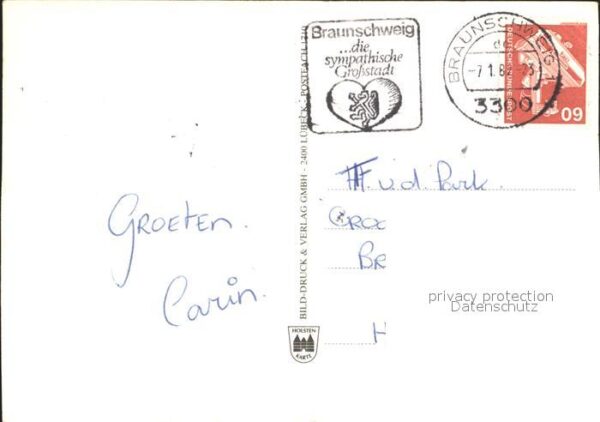 Braunschweig
...die
sympathische
Großstadt
BRAUNSCHWEIG 1
-7.1.8
3300
DEUTSCHE BUNDESPOST
60
BILD-DRUCK & VERLAG GMBH - 2400 LÜBECK - POSTFACH 1710
HOLSTEN
KARTE
Groeten.
Carin.
v.d. Park.
Groe
Br
H
privacy protection
Datenschutz